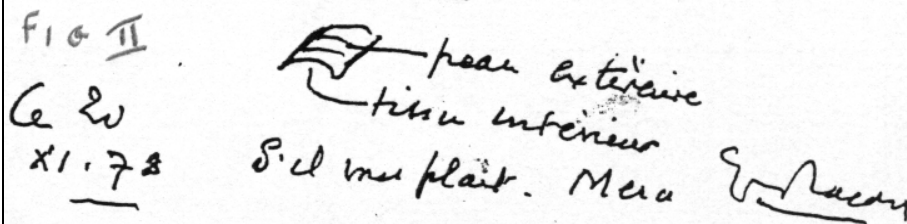 FIG II
peau extérieure
tissu intérieur
Ce 20
XI.78
S'il vous plaît. Merci